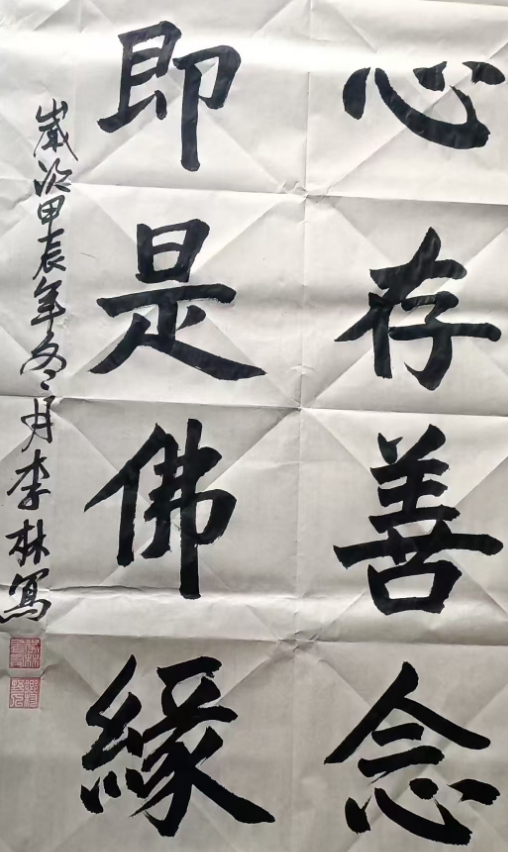 心存善念
即是佛緣
歲次甲辰年冬月李林寫